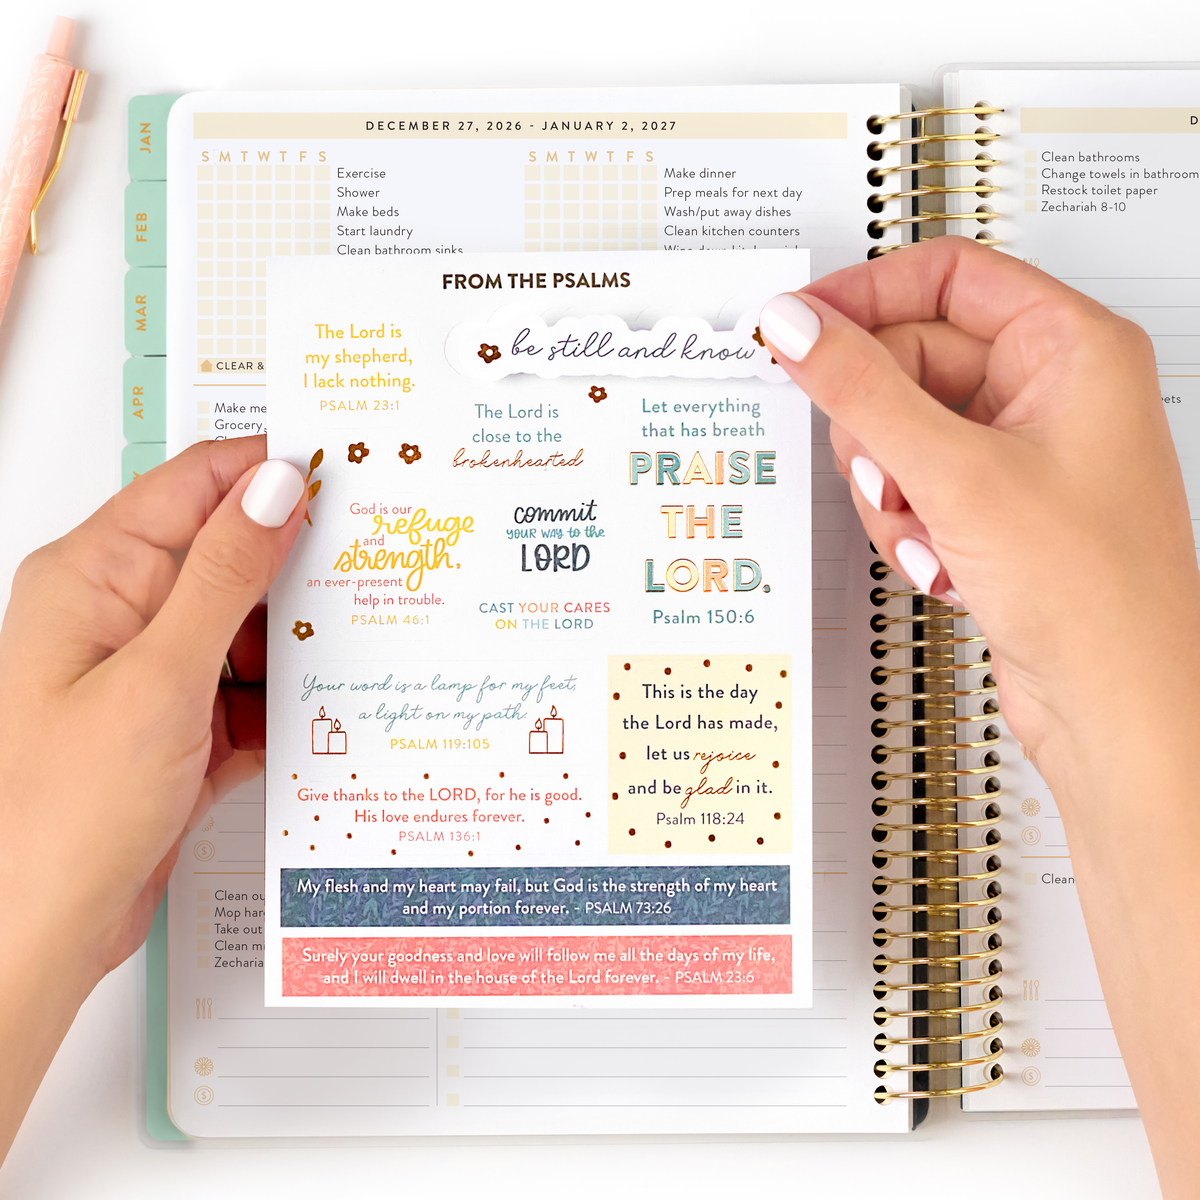 JAN
FEB
MAR
APR
DECEMBER 27, 2026 - JANUARY 2, 2027
S M T W T F S
Exercise
Shower
Make beds
Start laundry
Clean bathroom sinks
S M T W T F S
Make dinner
Prep meals for next day
Wash/put away dishes
Clean kitchen counters
CLEAR &
Make me
Grocery
Clean ou
Mop har
Take out
Clean mi
Zecharia
FROM THE PSALMS
be still and know
The Lord is
my shepherd,
I lack nothing.
PSALM 23:1
The Lord is
close to the
brokenhearted
Let everything
that has breath
PRAISE
THE
LORD.
Psalm 150:6
God is our
refuge
and
strength,
an ever-present
help in trouble.
PSALM 46:1
commit
YOUR WAY to the
LORD
CAST YOUR CARES
ON THE LORD
Your word is a lamp for my feet,
a light on my path.
PSALM 119:105
This is the day
the Lord has made,
let us rejoice
and be glad in it.
Psalm 118:24
Give thanks to the LORD, for he is good.
His love endures forever.
PSALM 136:1
My flesh and my heart may fail, but God is the strength of my heart
and my portion forever. - PSALM 73:26
Surely your goodness and love will follow me all the days of my life,
and I will dwell in the house of the Lord forever. - PSALM 23:6
D
Clean bathrooms
Change towels in bathroom
Restock toilet paper
Zechariah 8-10
eets
Clean